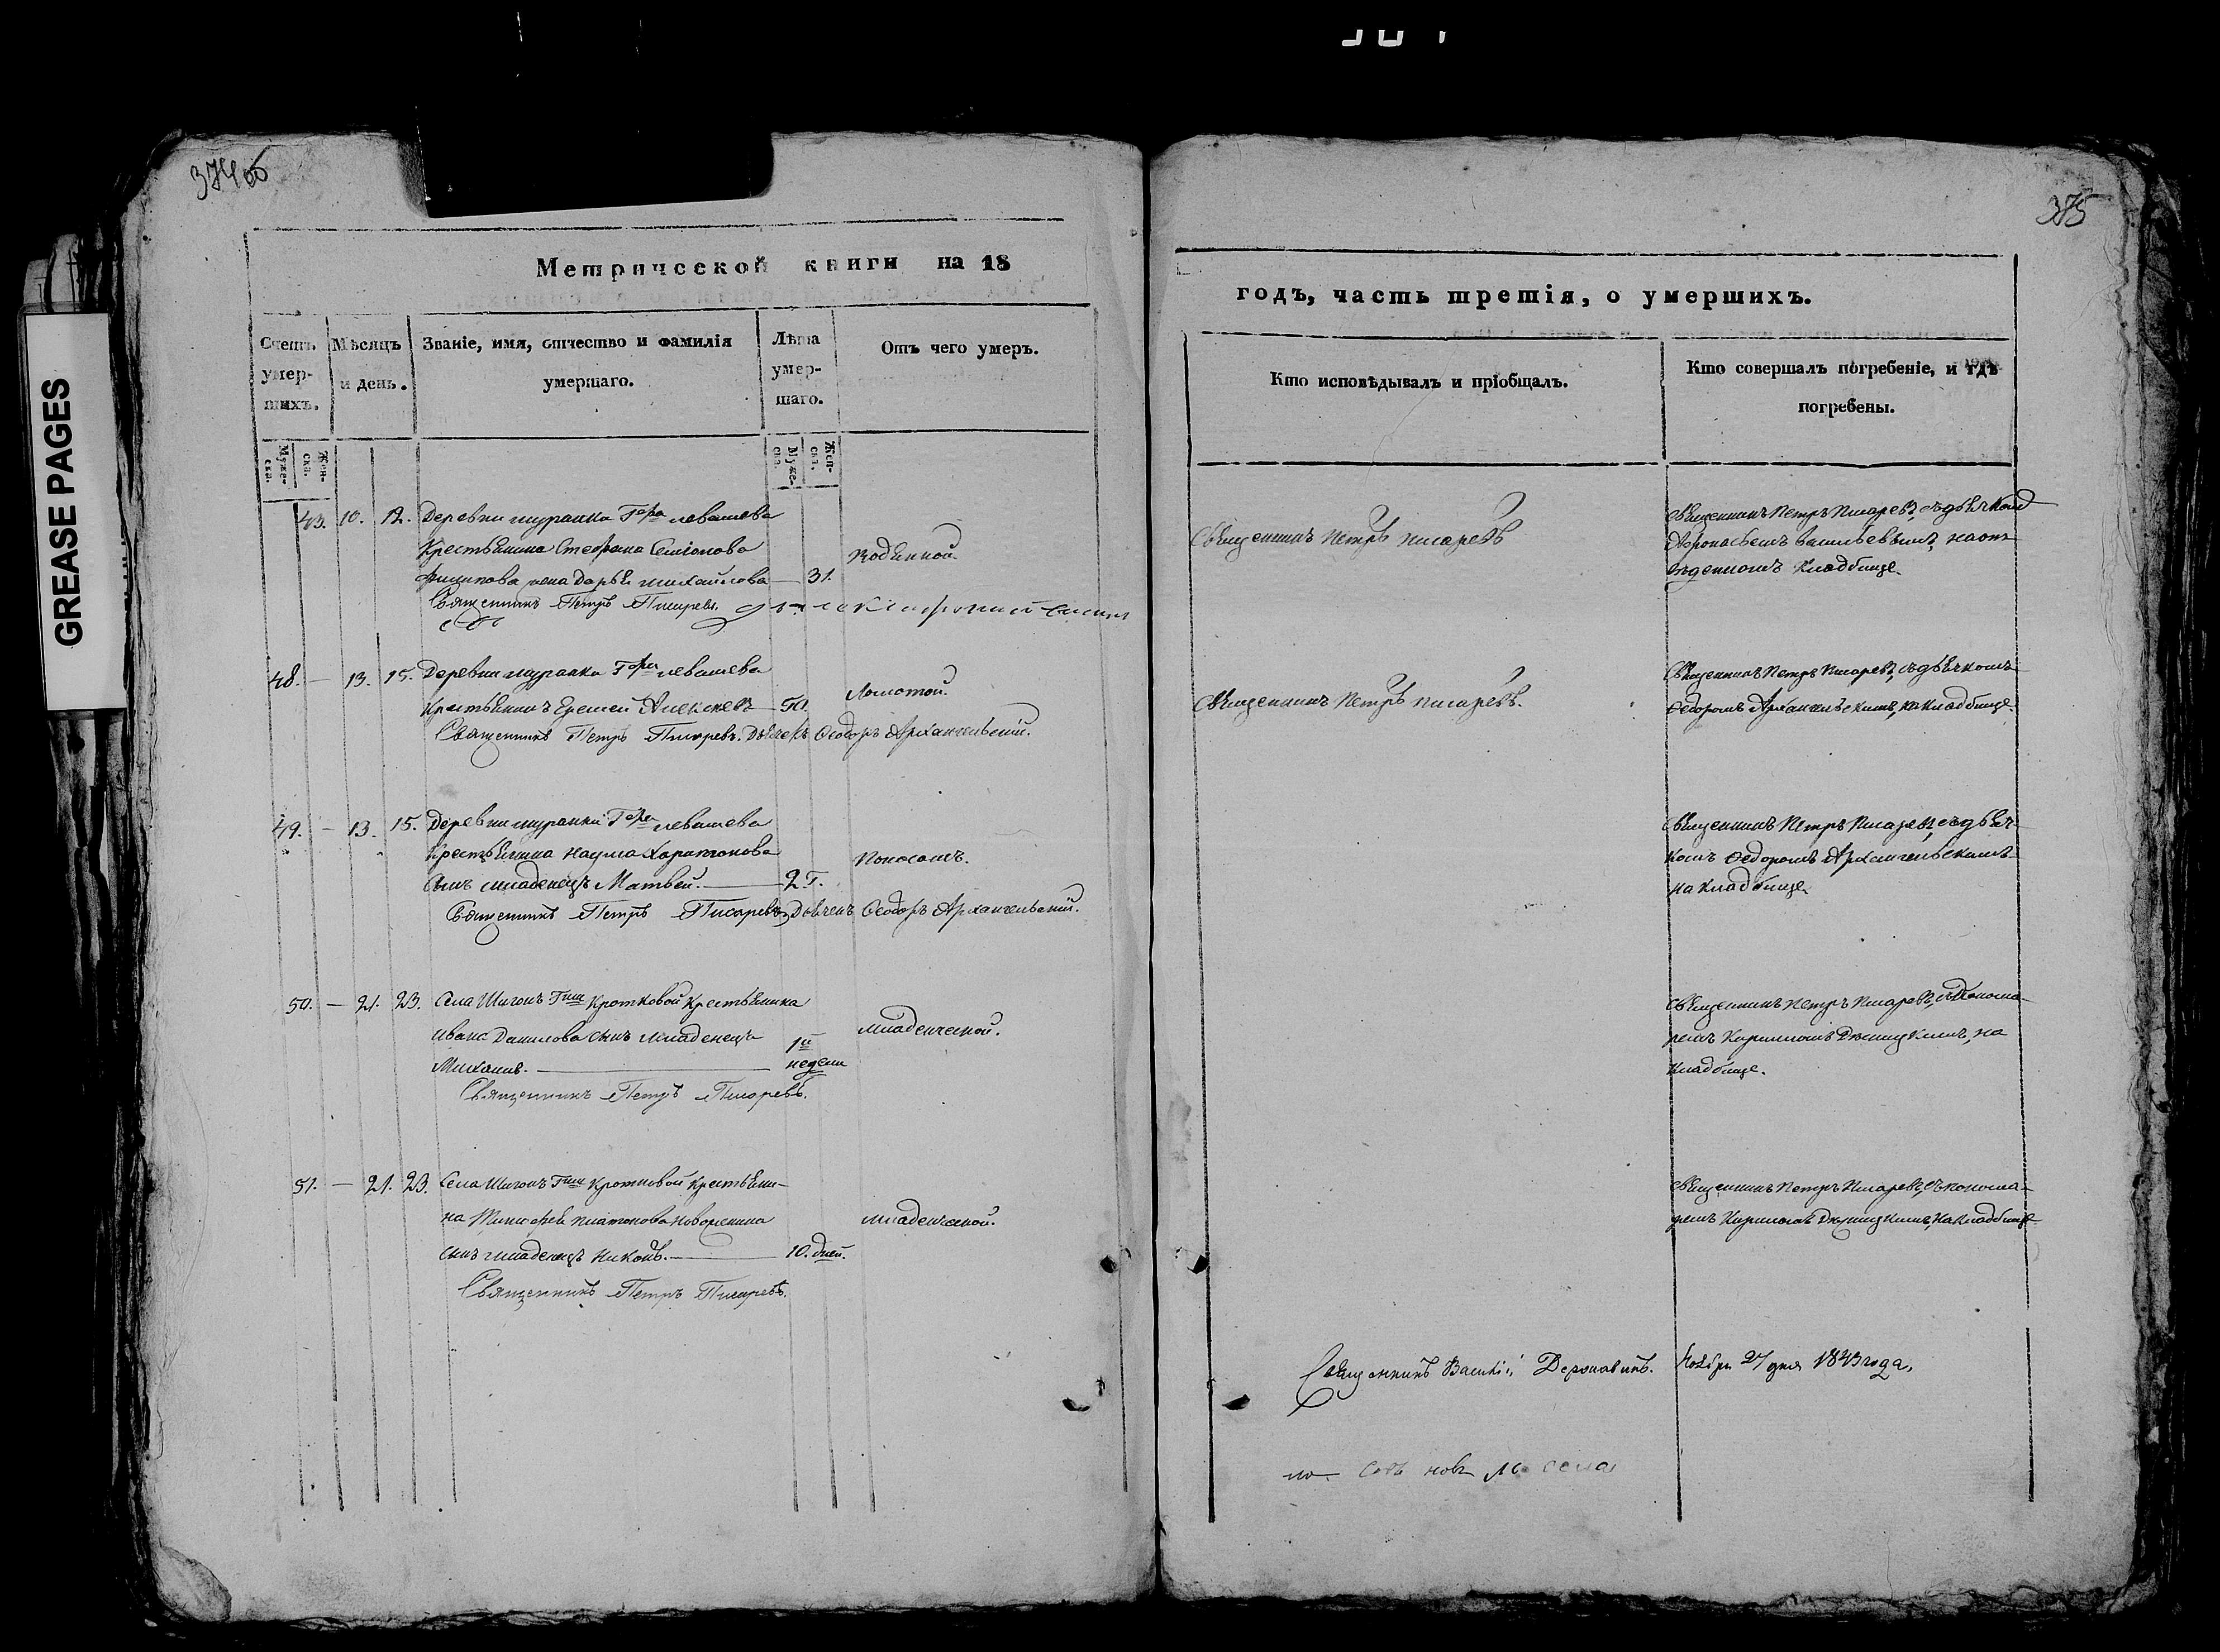 374 об
375
GREASE PAGES
Метрической книги на 18
Счетъ умер-шихъ.
Мѣсяцъ и день.
Званіе, имя, отчество и фамилія умершаго.
Лѣта умер-шаго.
Отъ чего умеръ.
Муже-ска.
Жен-ска.
Муже-ска.
Жен-ска.
43. 10. 12. Деревни муранки Г-ра левашева
Крестьянина Стефана Семіонова
Филипова жена Дарья михайлова — 31.
Водянной.
Священникъ Петръ Писаревъ.
48. — 13. 15. Деревни муранки Г-ра левашева
Крестьянинъ Еремей Алексѣевъ — 50.
Ломотой.
Священникъ Петръ Писаревъ. Дьячекъ Ѳеодоръ Архангельскій.
49. — 13. 15. Деревни муранки Г-ра левашева
Крестьянина Наума Харитонова
сынъ младенецъ Матвей. — 2 г.
Поносомъ.
Священникъ Петръ Писаревъ, Дьячекъ Ѳеодоръ Архангельскій.
50. — 21. 23. Села Шигонъ Г-жи Кротковой Крестьянина
ивана Данилова сынъ младенецъ
Михаилъ. — 1й недели
младенческой.
Священникъ Петръ Писаревъ.
51. — 21. 23. Села Шигонъ Г-жи Кротковой Крестьяни-
на Тимофея платонова
сынъ младенецъ Никонъ. — 10. дней.
младенческой.
Священникъ Петръ Писаревъ.
годъ, часть третія, о умершихъ.
Кто исповѣдывалъ и пріобщалъ.
Кто совершалъ погребеніе, и гдѣ
погребены.
Священникъ Петръ писаревъ
священникъ Петръ Писаревъ, съ дьячкомъ
Афонасьемъ васильевымъ, на отъ
веденномъ Кладбище.
Священникъ Петръ писаревъ.
Священникъ Петръ Писаревъ, съ дьячкомъ
Ѳедоромъ Архангельскимъ, на кладбище.
священникъ Петръ Писаревъ, съ дьяч-
комъ Ѳедоромъ Архангельскимъ
на кладбище.
священникъ Петръ Писаревъ, съ Понома-
ремъ Кириломъ на
кладбище.
священникъ Петръ Писаревъ, съ понома-
ремъ Кириломъ на кладбище.
Священникъ Василій Ноября 27 дня 1843 года.